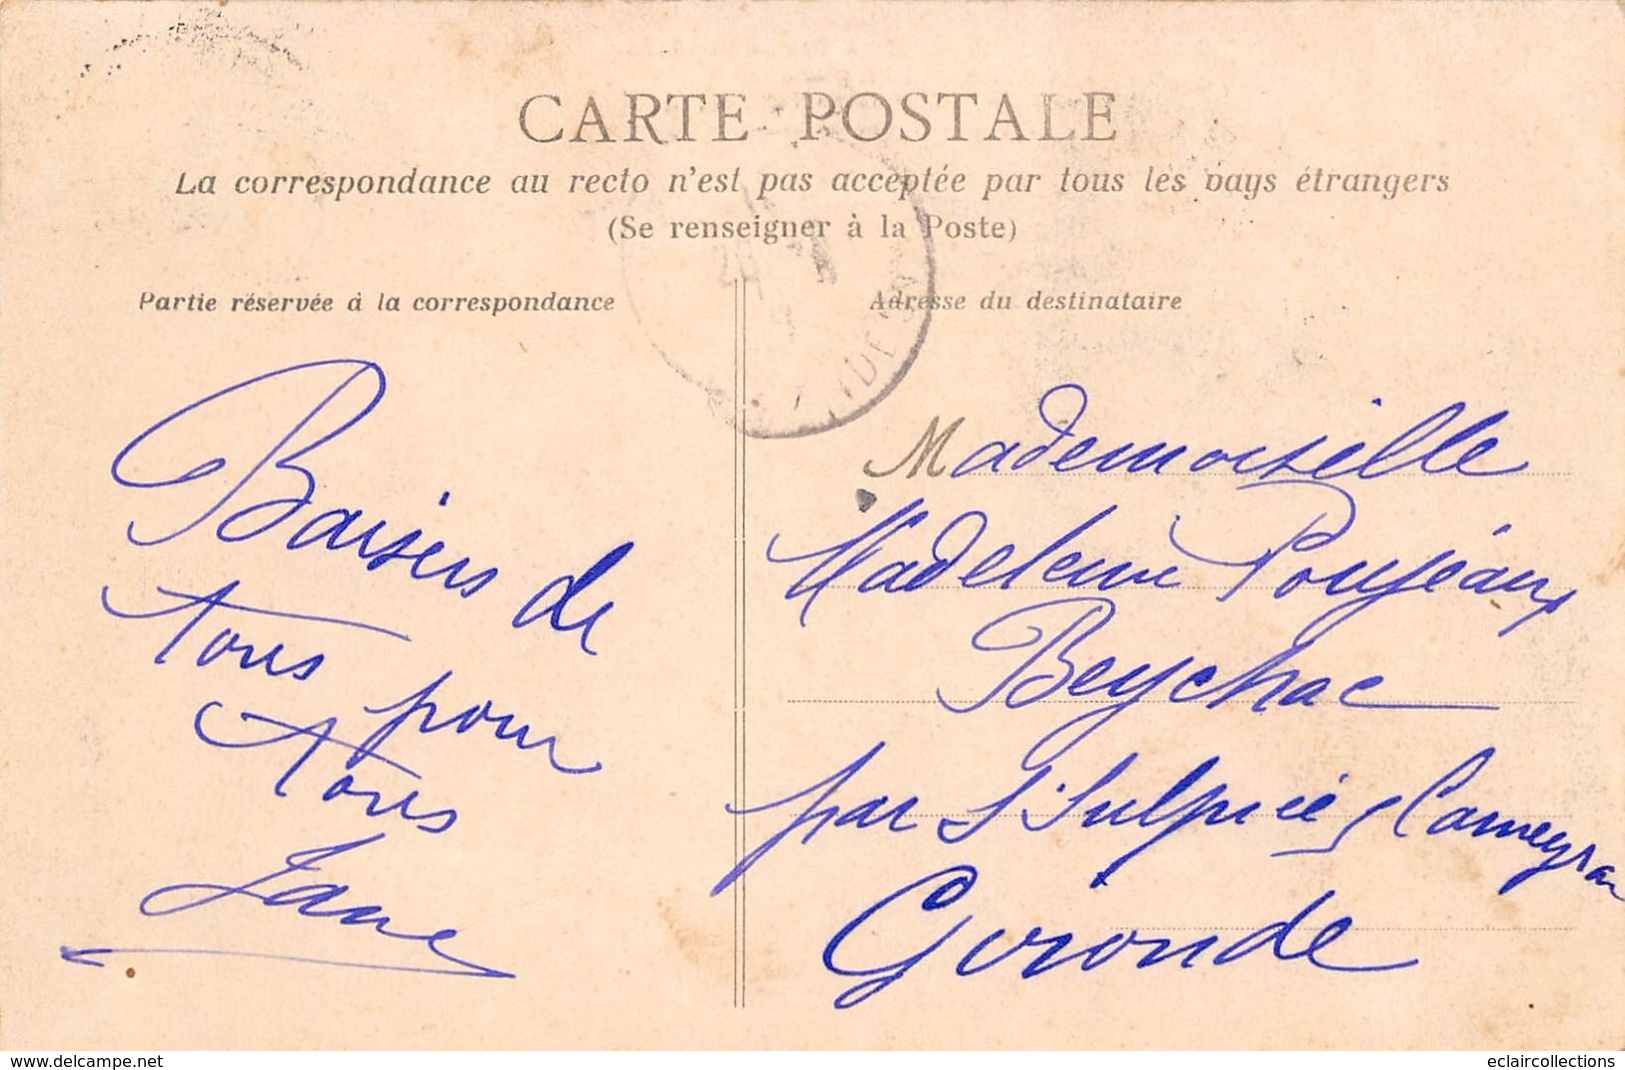 CARTE POSTALE
La correspondance au recto n'est pas acceptée par tous les pays étrangers
(Se renseigner à la Poste)
Partie réservée à la correspondance
Adresse du destinataire
Baisers de
tous pour
tous
Jane
Mademoiselle
Madeleine Poujeaux
Beychac
par St Sulpice Cameyrac
Gironde
www.delcampe.net
eclaircollections